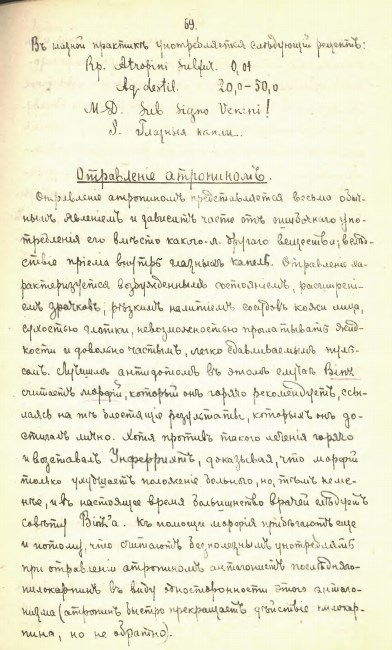 69.
Въ глазной практикѣ употребляется слѣдующій рецептъ:
Rp. Atropini Sulfur. 0,01
Aq. destil. 20,0–50,0
M.D. Sub Signo Veneni!
S. Глазныя капли.
Отравленіе атропиномъ.
Отравленіе атропиномъ представляется весьма обыч-
нымъ явленіемъ и зависитъ часто отъ ошибочнаго упо-
требленія его вмѣсто какого-л. другого вещества; вслѣд-
ствіе пріема внутрь глазныхъ капель. Отравленіе ха-
рактеризуется возбужденнымъ состояніемъ, расширені-
емъ зрачковъ, рѣзкимъ налитіемъ сосудовъ кожи лица,
сухостью глотки, невозможностью проглатывать жид-
кости и довольно частымъ, легко сдавливаемымъ пуль-
сомъ. Лучшимъ антидотомъ въ этомъ случаѣ Binz
считаетъ морфій, который онъ горячо рекомендуетъ, ссы-
лаясь на тѣ блестящіе результаты, которыхъ онъ до-
стигалъ лично. Хотя противъ такого леченія горячо
и возставалъ Унферрихтъ, доказывая, что морфій
только ухудшаетъ положеніе больного, но, тѣмъ не ме-
нѣе, и въ настоящее время большинство врачей слѣдуетъ
совѣту Binz'а. Къ помощи морфія прибѣгаютъ еще
и потому, что считаютъ безполезнымъ употреблять
при отравленіи атропиномъ антагониста послѣдняго-
пилокарпинъ въ виду односторонности этого антаго-
низма (атропинъ быстро прекращаетъ дѣйствіе пилокар-
пина, но не обратно).